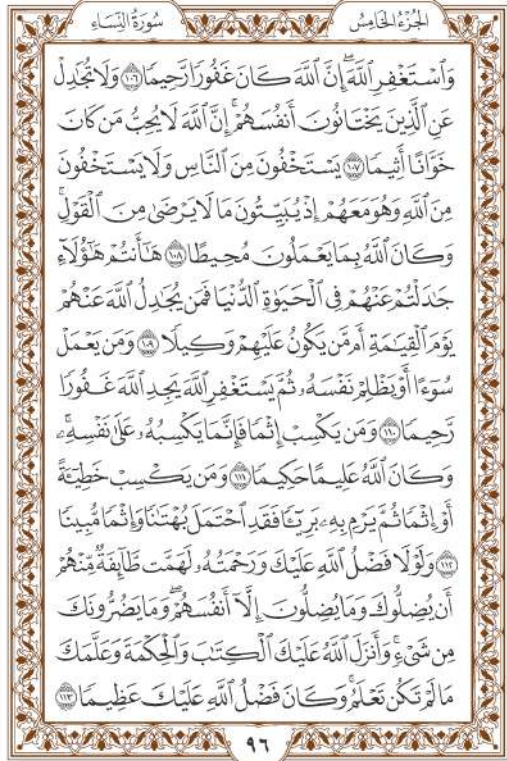 الجُزْءُ الخَامِسُ سُورَةُ النِّسَاءِ
وَٱسْتَغْفِرِ ٱللَّهَۖ إِنَّ ٱللَّهَ كَانَ غَفُورٗا رَّحِيمٗا ١٠٦ وَلَا تُجَٰدِلۡ
عَنِ ٱلَّذِينَ يَخۡتَانُونَ أَنفُسَهُمۡۚ إِنَّ ٱللَّهَ لَا يُحِبُّ مَن كَانَ
خَوَّانًا أَثِيمٗا ١٠٧ يَسۡتَخۡفُونَ مِنَ ٱلنَّاسِ وَلَا يَسۡتَخۡفُونَ
مِنَ ٱللَّهِ وَهُوَ مَعَهُمۡ إِذۡ يُبَيِّتُونَ مَا لَا يَرۡضَىٰ مِنَ ٱلۡقَوۡلِۚ
وَكَانَ ٱللَّهُ بِمَا يَعۡمَلُونَ مُحِيطًا ١٠٨ هَٰٓأَنتُمۡ هَٰٓؤُلَآءِ
جَٰدَلۡتُمۡ عَنۡهُمۡ فِي ٱلۡحَيَوٰةِ ٱلدُّنۡيَا فَمَن يُجَٰدِلُ ٱللَّهَ عَنۡهُمۡ
يَوۡمَ ٱلۡقِيَٰمَةِ أَم مَّن يَكُونُ عَلَيۡهِمۡ وَكِيلٗا ١٠٩ وَمَن يَعۡمَلۡ
سُوٓءًا أَوۡ يَظۡلِمۡ نَفۡسَهُۥ ثُمَّ يَسۡتَغۡفِرِ ٱللَّهَ يَجِدِ ٱللَّهَ غَفُورٗا
رَّحِيمٗا ١١٠ وَمَن يَكۡسِبۡ إِثۡمٗا فَإِنَّمَا يَكۡسِبُهُۥ عَلَىٰ نَفۡسِهِۦۚ
وَكَانَ ٱللَّهُ عَلِيمًا حَكِيمٗا ١١١ وَمَن يَكۡسِبۡ خَطِيٓـَٔةً
أَوۡ إِثۡمٗا ثُمَّ يَرۡمِ بِهِۦ بَرِيٓـٔٗا فَقَدِ ٱحۡتَمَلَ بُهۡتَٰنٗا وَإِثۡمٗا مُّبِينٗا
١١٢ وَلَوۡلَا فَضۡلُ ٱللَّهِ عَلَيۡكَ وَرَحۡمَتُهُۥ لَهَمَّت طَّآئِفَةٞ مِّنۡهُمۡ
أَن يُضِلُّوكَ وَمَا يُضِلُّونَ إِلَّآ أَنفُسَهُمۡۖ وَمَا يَضُرُّونَكَ
مِن شَيۡءٖۚ وَأَنزَلَ ٱللَّهُ عَلَيۡكَ ٱلۡكِتَٰبَ وَٱلۡحِكۡمَةَ وَعَلَّمَكَ
مَا لَمۡ تَكُن تَعۡلَمُۚ وَكَانَ فَضۡلُ ٱللَّهِ عَلَيۡكَ عَظِيمٗا ١١٣
٩٦